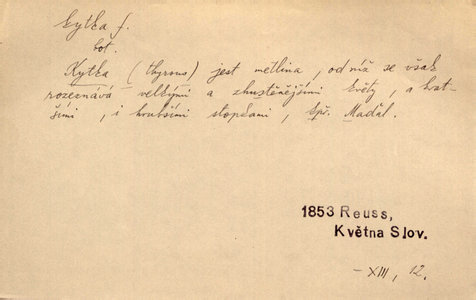 kytka f.
bot.
Kytka (thyrsus) jest metlina, od níž se však
rozeznává velkými a zhustěnějšími květy, a krat-
šími, i hrubšími stopkami, kpř. Maďal.
1853 Reuss,
Května Slov.
-XIII, 12.